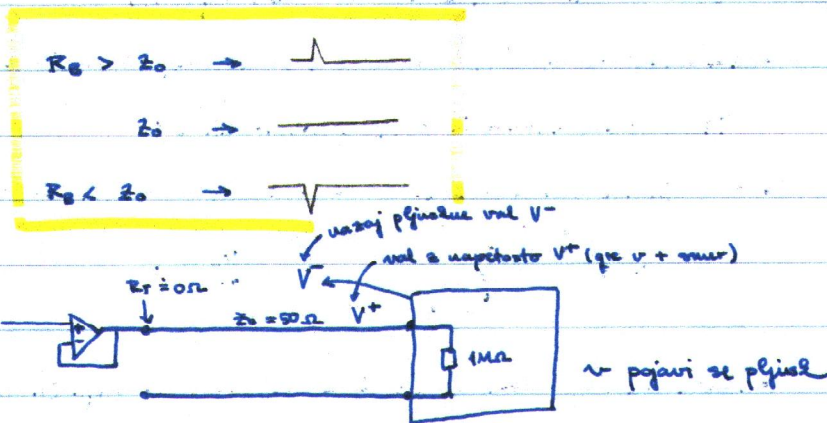 R_B > Z_0 →
Z_0 →
R_B < Z_0 →
nazaj pljuskne val V⁻
val z napetostjo V⁺ (gre v + smer)
V⁻
R_T = 0Ω
Z_0 = 50Ω
V⁺
1MΩ
pojavi se pljusk